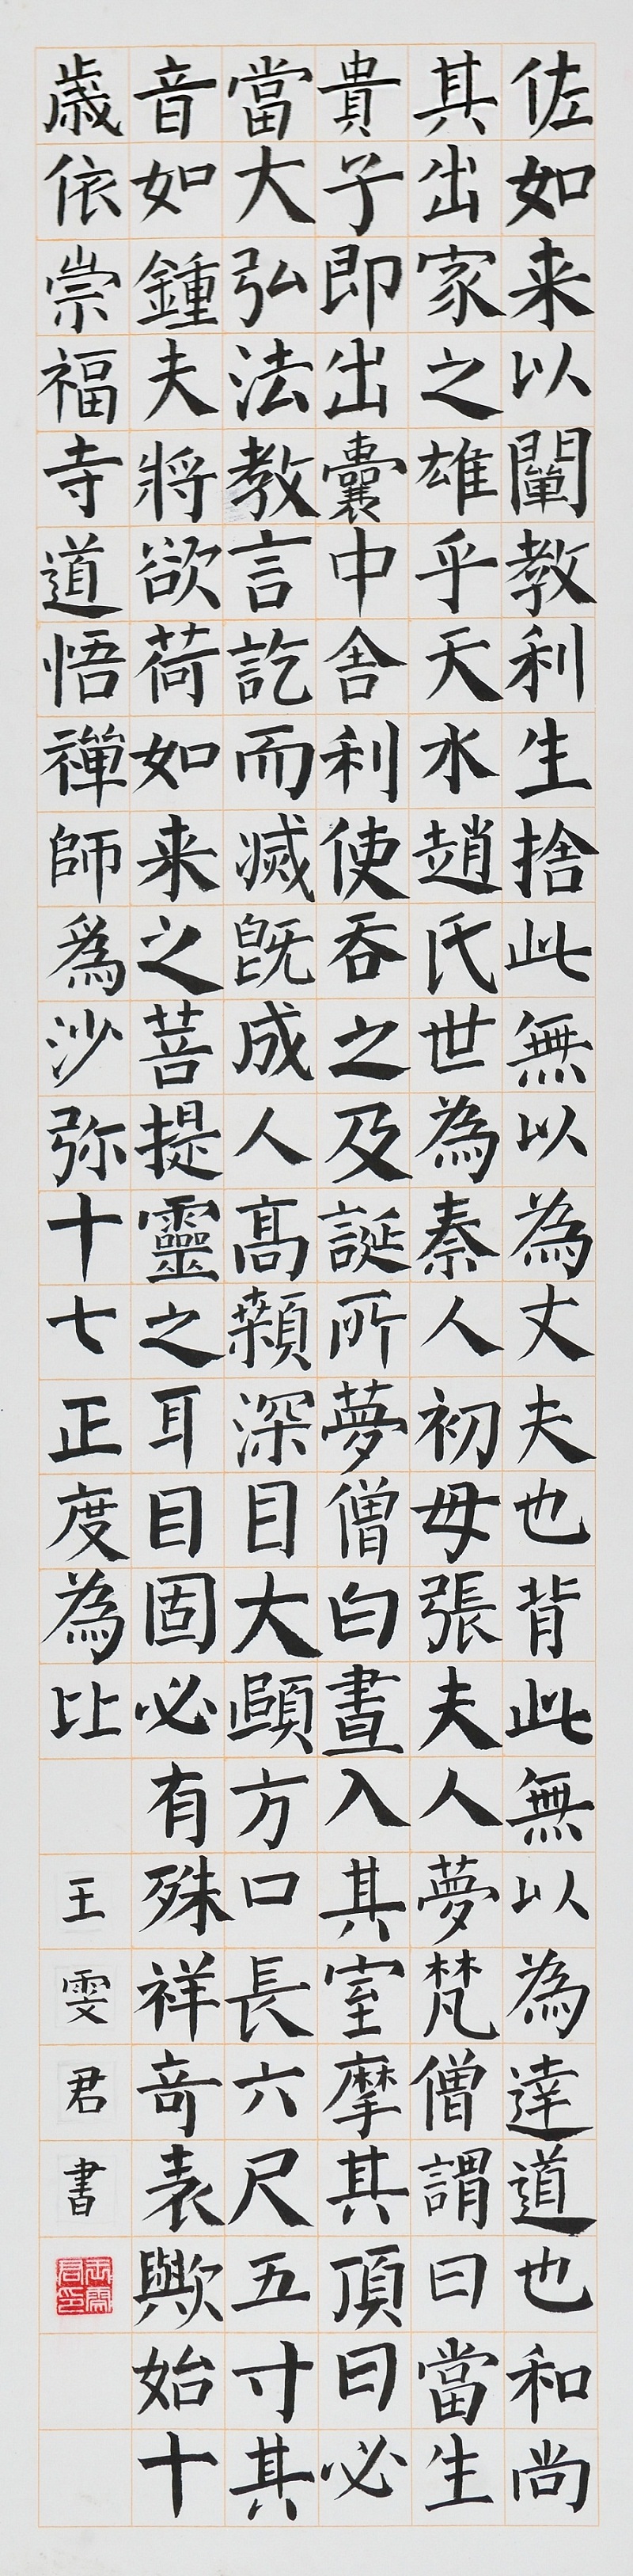 佐如来以闡教利生捨此無以為丈夫也背此無以為達道也和尚
其出家之雄乎天水趙氏世為秦人初母張夫人夢梵僧謂曰當生
貴子即出囊中舍利使吞之及誕所夢僧白晝入其室摩其頂曰必
當大弘法教言訖而滅既成人高顙深目大頤方口長六尺五寸其
音如鍾夫將欲荷如来之菩提靈之耳目固必有殊祥奇表歟始十
歲依崇福寺道悟禪師為沙弥十七正度為比
王雯君書